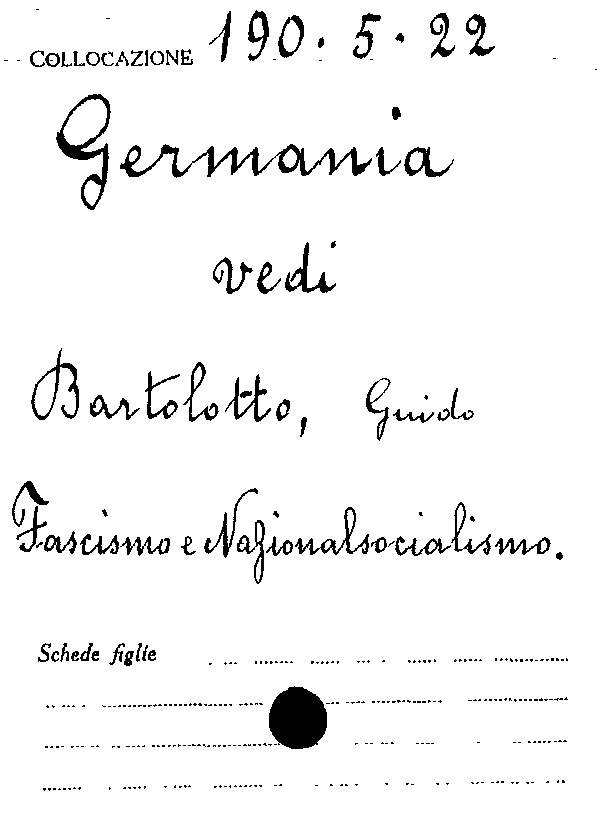 COLLOCAZIONE 190.5.22
Germania
vedi
Bartolotto, Guido
Fascismo e Nazionalsocialismo.
Schede figlie